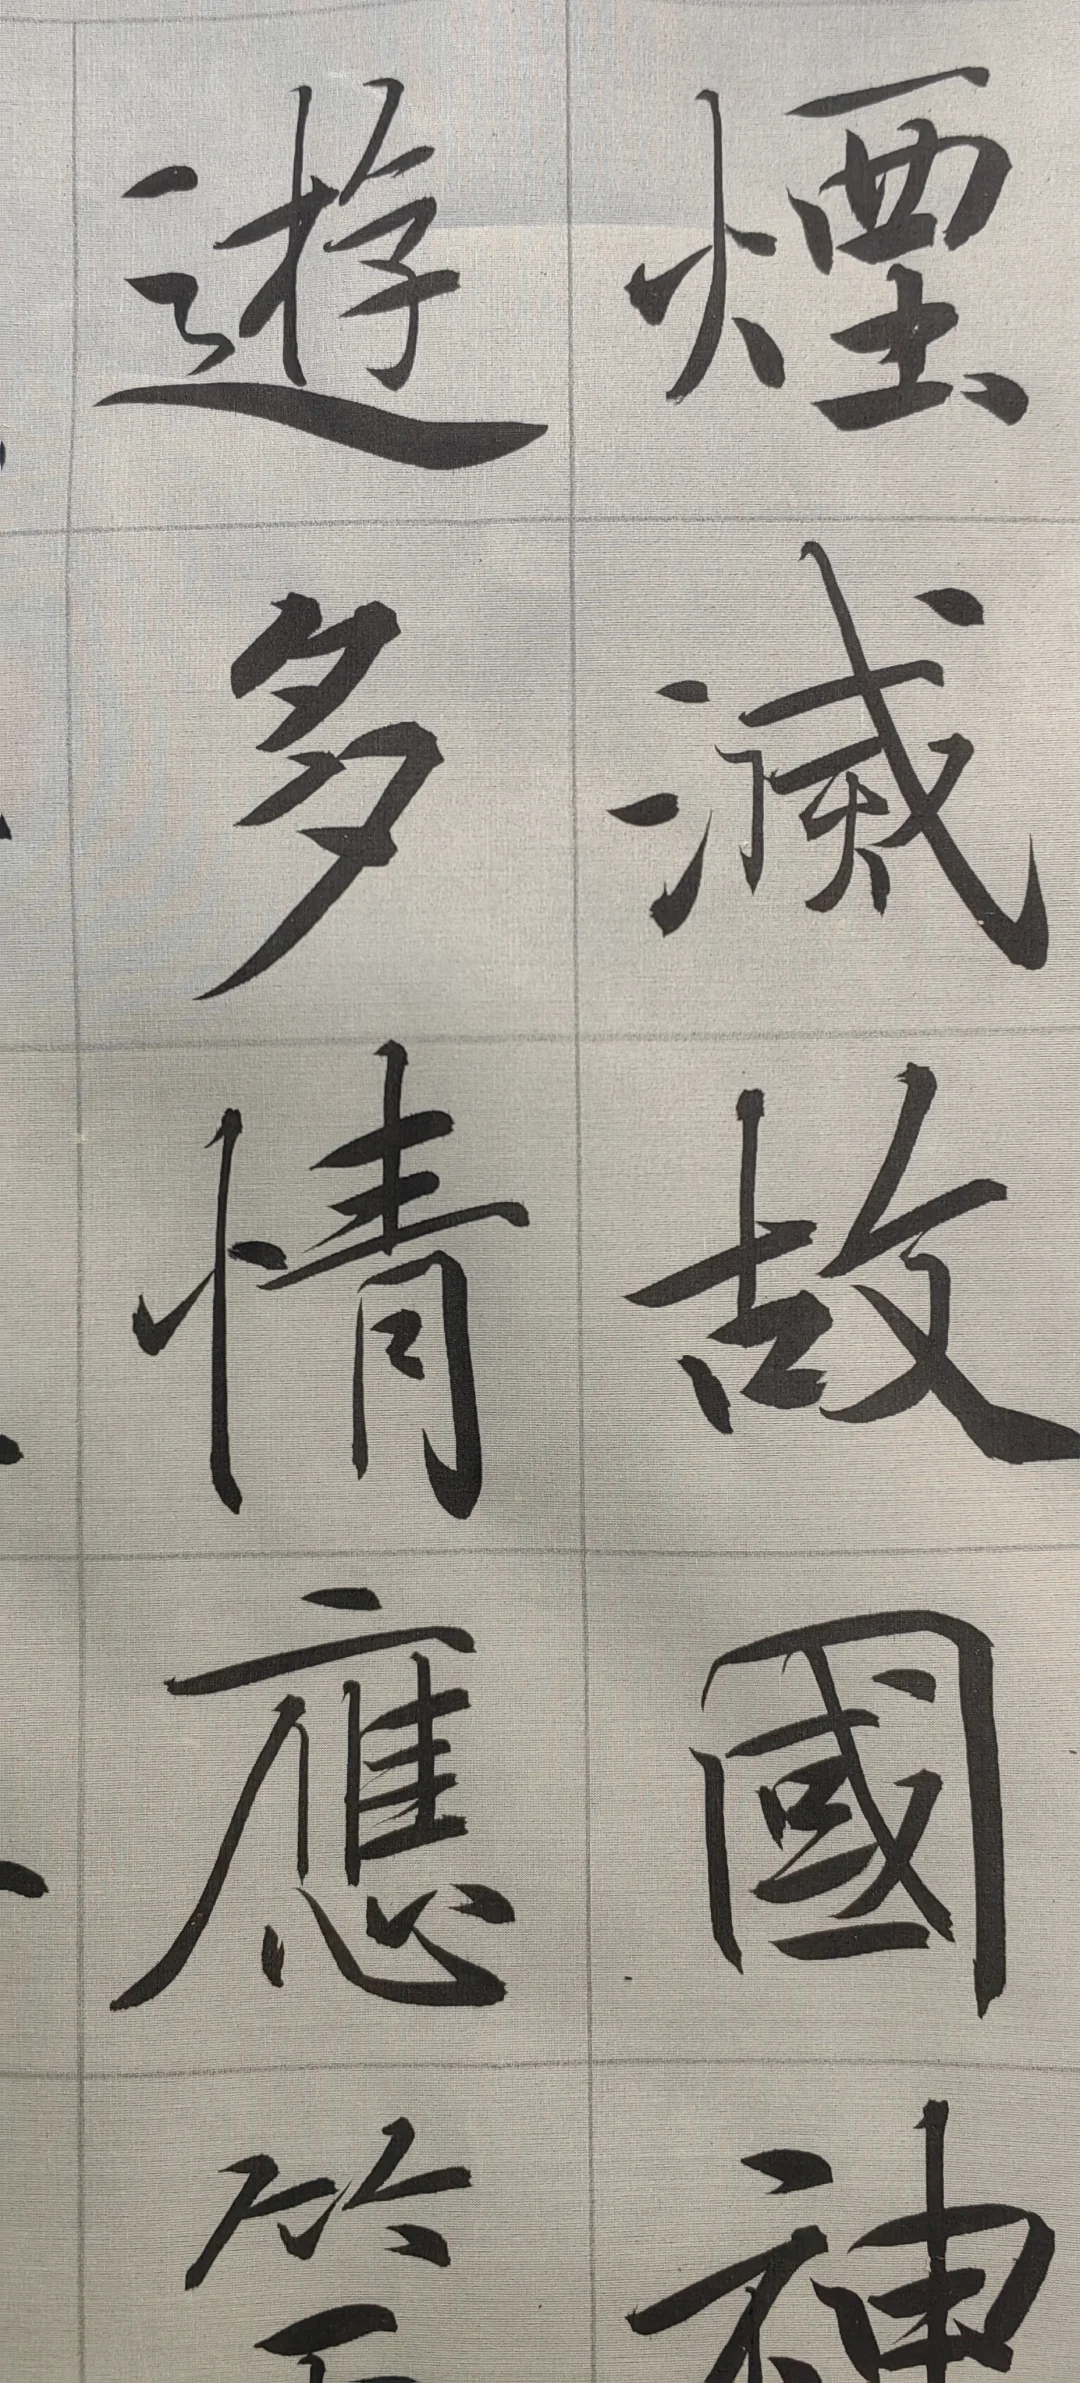 煙滅故國神
遊多情應笑